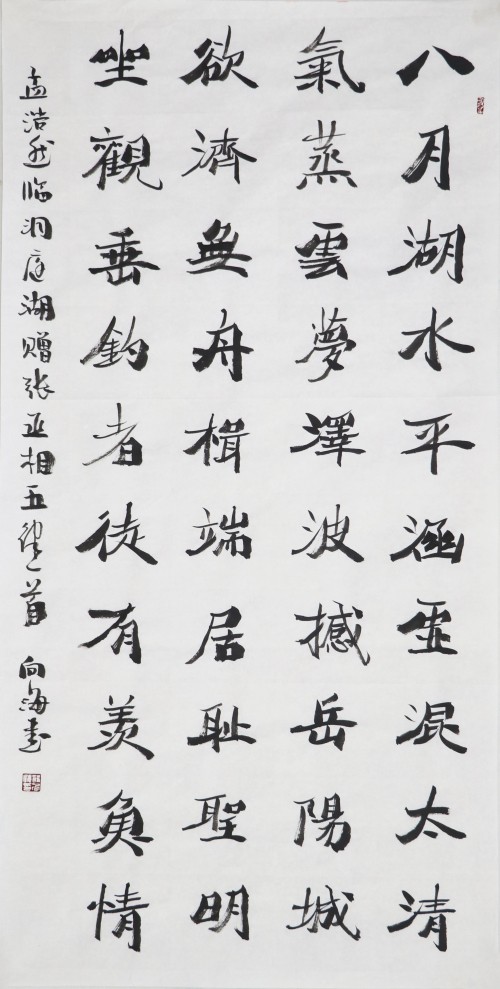 八月湖水平涵虚混太清
氣蒸雲夢澤波撼岳陽城
欲濟無舟楫端居耻聖明
坐觀垂釣者徒有羡魚情
孟浩然临洞庭湖赠张丞相五律一首 向海书